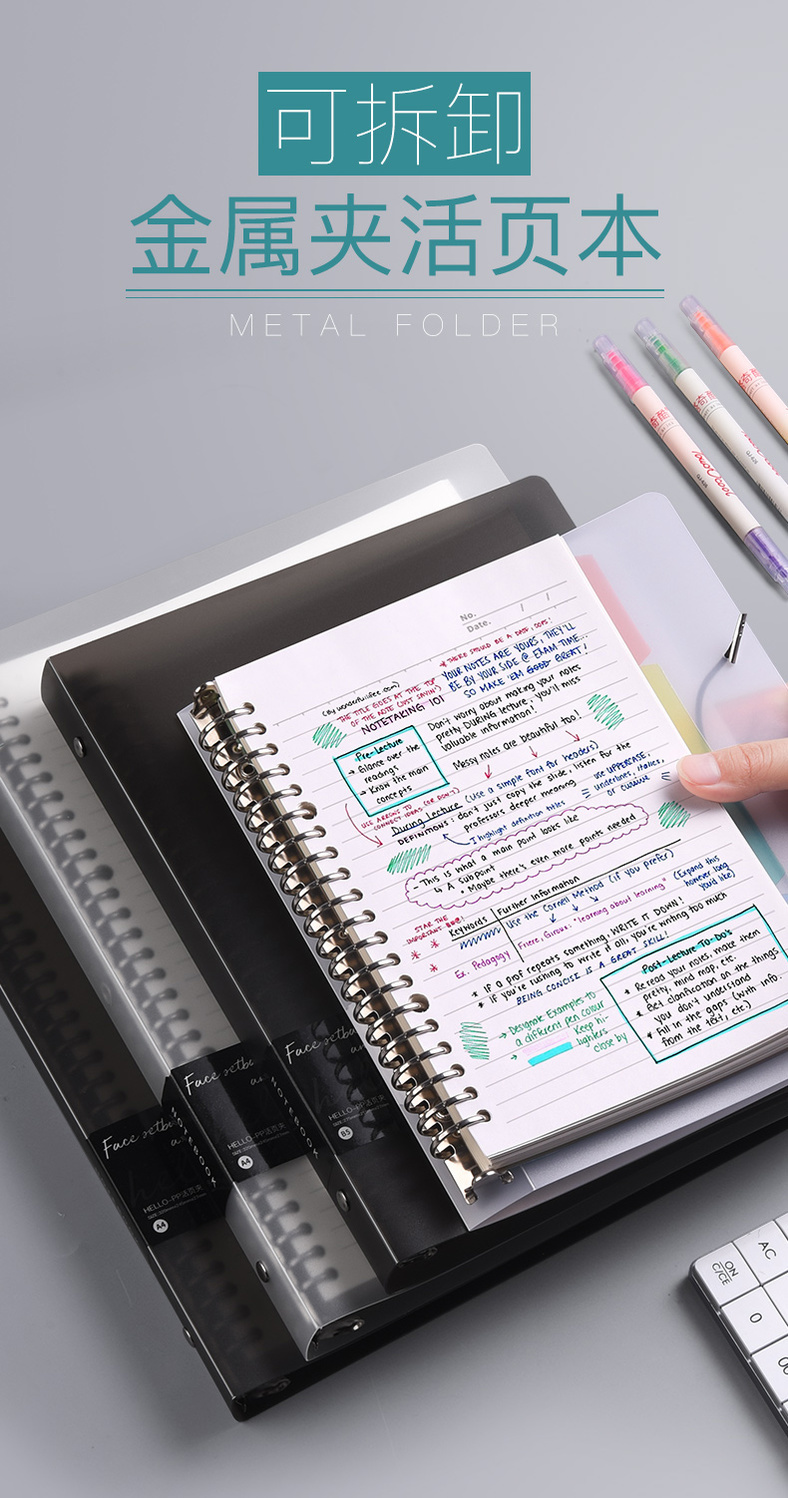 可拆卸
金属夹活页本
METAL FOLDER
No.
Date. / /
(by wonderfulifee.com)
* THERE SHOULD BE A DATE, DUDE!
THE TITLE GOES AT THE TOP
OF THE NOTE (JUST SAYIN')
NOTETAKING 101
YOUR NOTES ARE YOURS, THEY'LL
BE BY YOUR SIDE @ EXAM TIME...
SO MAKE 'EM GOOD GREAT!
Pre-Lecture
→ Glance over the
readings
→ Know the main
concepts
Don't worry about making your notes
pretty DURING lecture, you'll miss
valuable information!
Messy notes are beautiful too!
USE ARROWS TO
CONNECT IDEAS (OR DON'T)
During Lecture (Use a simple font for headers)
DEFINITIONS: don't just copy the slide, listen for the
professors deeper meaning
I highlight definition titles
use UPPERCASE,
underlines, italics,
or cursive
- This is what a main point looks like
↳ A subpoint
• Maybe there's even more points needed
STAR THE
IMPORTANT
Keywords
Further Information
Use the Cornell Method (if you prefer)
(Expand this
however long
you'd like)
Ex. Pedagogy
Friere, Giroux: "learning about learning"
* IF a prof repeats something, WRITE IT DOWN!
* if you're rushing to write it all, you're writing too much
BEING CONCISE IS A GREAT SKILL!
→ Designate Examples to
a different pen colour
→ Keep hi-
lighters
close by
Post-Lecture To-Do's
* Reread your notes, make them
pretty, mind map, etc.
* Get clarification on the things
you don't understand
* Fill in the gaps (with info.
from the text, etc.)
Face
NOTEBOOK
HELLO-PP活页夹
A4
Face
NOTEBOOK
HELLO-PP活页夹
A4
Face
HELLO-PP活页夹
B5
ON
C/CE
AC
0